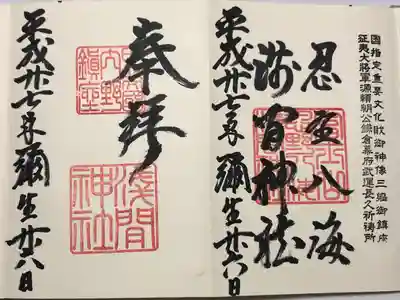 國指定重要文化財御神像三躯御鎮座
征夷大將軍源頼朝公鎌倉幕府武運長久祈祷所
忍埜八海
淺間神社
平成廿七年彌生廿六日
奉拝
淺間神社
平成廿七年彌生廿六日